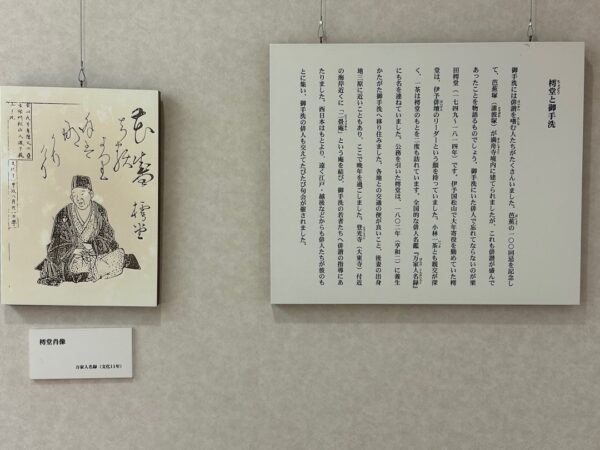 樗堂と御手洗
御手洗には俳諧を嗜む人たちがたくさんいました。芭蕉の一〇〇回忌を記念し
て、芭蕉塚（諸波塚）が満舟寺境内に建てられましたが、これも俳諧が盛んで
あったことを物語るものでしょう。御手洗にいた俳人で忘れてならないのが栗
田樗堂（一七四九～一八一四年）です。伊予国松山で大年寄役を勤めていた樗
堂は、伊予俳壇のリーダーという顔を持っていました。小林一茶とも親交が深
く、一茶は樗堂のもとを二度も訪れています。全国的な俳人名鑑『万家人名録』
にも名を連ねていました。公務を引いた樗堂は、一八〇二年（享和二）に養生
かたがた御手洗へ移り住みました。各地との交通の便が良いこと、後妻の出身
地三原に近いこともあり、ここで晩年を過ごしました。登光寺（大東寺）付近
の海岸近くに「二畳庵」という庵を結び、御手洗の若者たちへ俳諧の指導にあ
たりました。西日本はもとより、遠く江戸・越後などからも俳人たちが彼のも
とに集い、御手洗の俳人も交えてたびたび句会が催されました。
樗堂
樗堂肖像
万家人名録（文化11年）